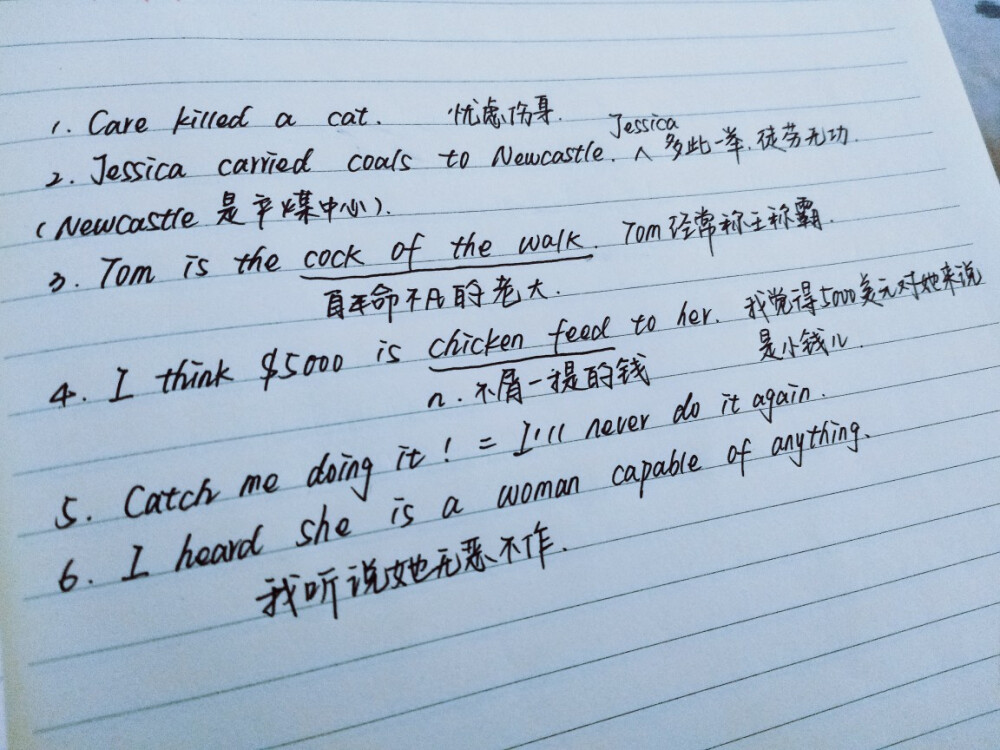 1. Care killed a cat. 忧虑伤身.
2. Jessica carried coals to Newcastle. Jessica 多此一举.徒劳无功.
(Newcastle 是产煤中心).
3. Tom is the cock of the walk. Tom经常称王称霸.
自命不凡的老大.
4. I think $5000 is chicken feed to her. 我觉得5000美元对她来说
是小钱儿
n. 不屑一提的钱
5. Catch me doing it! = I'll never do it again.
6. I heard she is a woman capable of anything.
我听说她无恶不作.